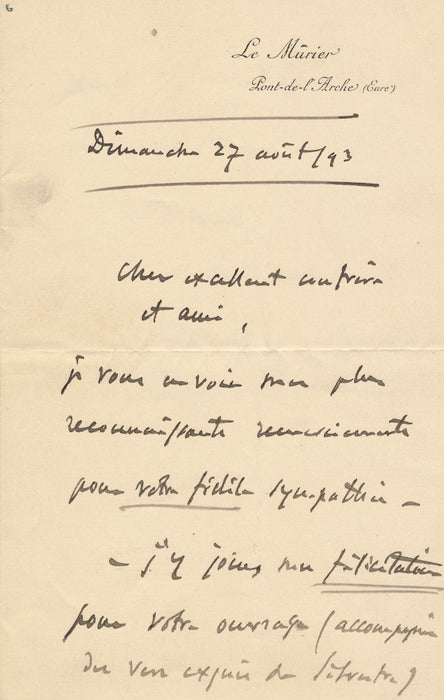 6
Le Mûrier
Pont-de-l'Arche (Eure)
Dimanche 27 août/93
cher excellent confrère
et ami,
je vous envoie mes plus
reconnaissants remerciements
pour votre fidèle sympathie –
– j'y joins mes félicitations
pour votre ouvrage (accompagné
des vers exquis de Silvestre)